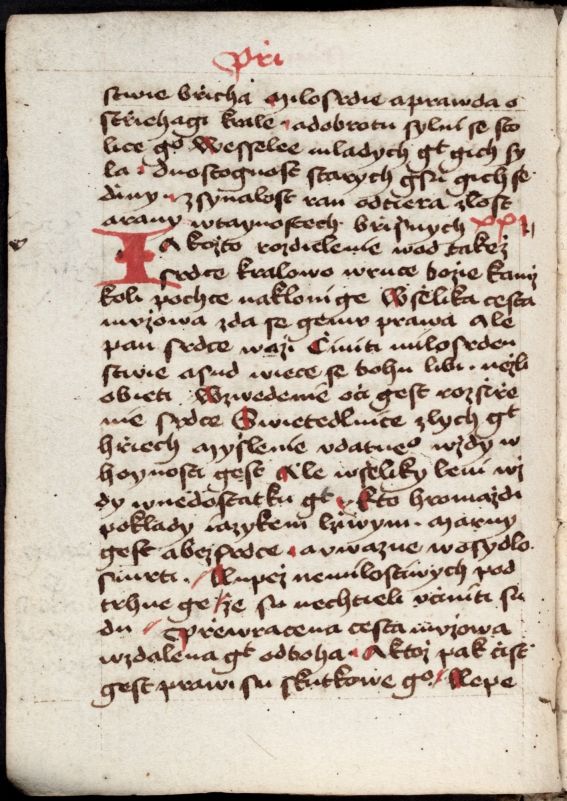 Při
stwie břicha Milosrdie a prawda o
střiehagi krále a dobrotu sylní se sto
lice gº Wessele mladych gt gich sy
la a duostognost starych gsu gich sse
diny zsynalost ran odtiera zlost
a rany w taynostech břišnych xxi
Iakožto rozdielenie wod takež
srdce kralowo w ruce božie kamž
koli pochce nakloni ge Wšelika cesta
mužowa zda se gemu prawa Ale
pan srdce waží Činiti milosrden
stwie a sud wiece se bohu libi nežli
obieti Wzwedenie očí gest rozšiře
nie srdce Swietedlnice zlych gt
hřiech Myšlenie udatneº wždy w
hoynosti gest Ale wšeliky leni wž
dy w nedostatku gt Kto hromazdi
poklady iazykem lžiwym marny
gest a bez srdce a uwazne w osydlo
smrti Lupež nemilostiwych pod
trhne ge že su nechtieli učiniti su
du Přewracena cesta mužowa
wzdalena gt od boha A ktož pak čist
gest prawi su skutkowe gº Lepe